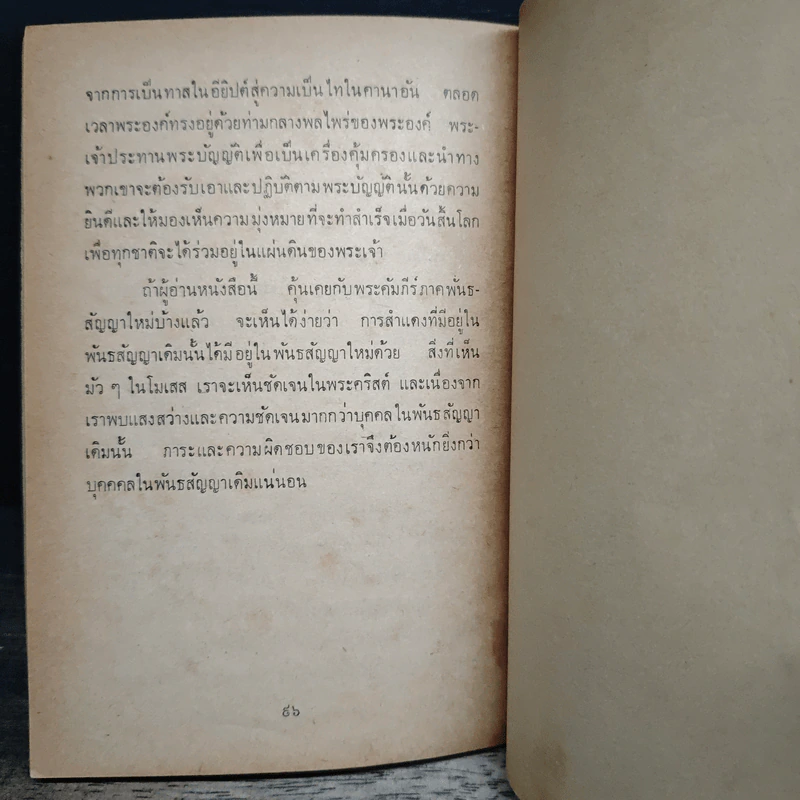 จากการเป็นทาสในอียิปต์สู่ความเป็นไทในคานาอัน ตลอด
เวลาพระองค์ทรงอยู่ด้วยท่ามกลางพลไพร่ของพระองค์ พระ-
เจ้าประทานพระบัญญัติเพื่อเป็นเครื่องคุ้มครองและนำทาง
พวกเขาจะต้องรับเอาและปฏิบัติตามพระบัญญัตินั้นด้วยความ
ยินดีและให้มองเห็นความมุ่งหมายที่จะทำสำเร็จเมื่อวันสิ้นโลก
เพื่อทุกชาติจะได้ร่วมอยู่ในแผ่นดินของพระเจ้า
ถ้าผู้อ่านหนังสือนี้ คุ้นเคยกับพระคัมภีร์ภาคพันธ-
สัญญาใหม่บ้างแล้ว จะเห็นได้ง่ายว่า การสำแดงที่มีอยู่ใน
พันธสัญญาเดิมนั้นได้มีอยู่ในพันธสัญญาใหม่ด้วย สิ่งที่เห็น
มัว ๆ ในโมเสส เราจะเห็นชัดเจนในพระคริสต์ และเนื่องจาก
เราพบแสงสว่างและความชัดเจนมากกว่าบุคคลในพันธสัญญา
เดิมนั้น ภาระและความผิดชอบของเราจึงต้องหนักยิ่งกว่า
บุคคคลในพันธสัญญาเดิมแน่นอน
๙๖